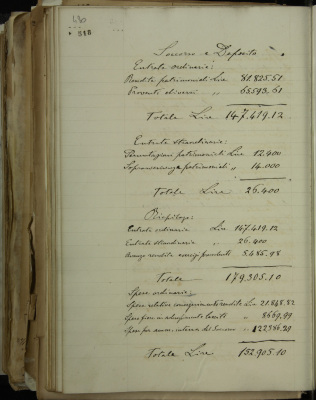 480
318
Soccorso e Deposito
Entrate ordinarie:
Rendite patrimoniali Lire 81.825.51
Proventi diversi „ 65593.61
Totale Lire 147.419.12
Entrate straordinarie:
patrimoniali Lire 12.400
Sopravvenienze patrimoniali „ 14.000
Totale Lire 26.400
Riepilogo:
Entrate ordinarie Lire 147.419.12
Entrate straordinarie „ 26.400
Avanzo rendite esercizi precedenti 5.485.98
Totale 179.305.10
Spese ordinarie:
Spese relative conseguimento rendite Lire 21.848.82
Spese „ 8669.99
Spese per amm. interna del Soccorso „ 122386.29
Totale Lire 152.905.10